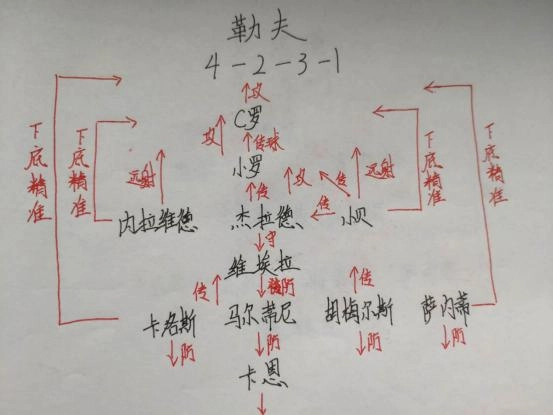 勒夫
4-2-3-1
攻
C罗
攻
传球
下底精准
下底精准
远射
小罗
攻
传
远射
下底精准
下底精准
传
传
内拉维德
杰拉德
小贝
守
维埃拉
传
传
防
卡洛斯
马尔蒂尼
胡梅尔斯
萨内蒂
防
防
防
防
卡恩